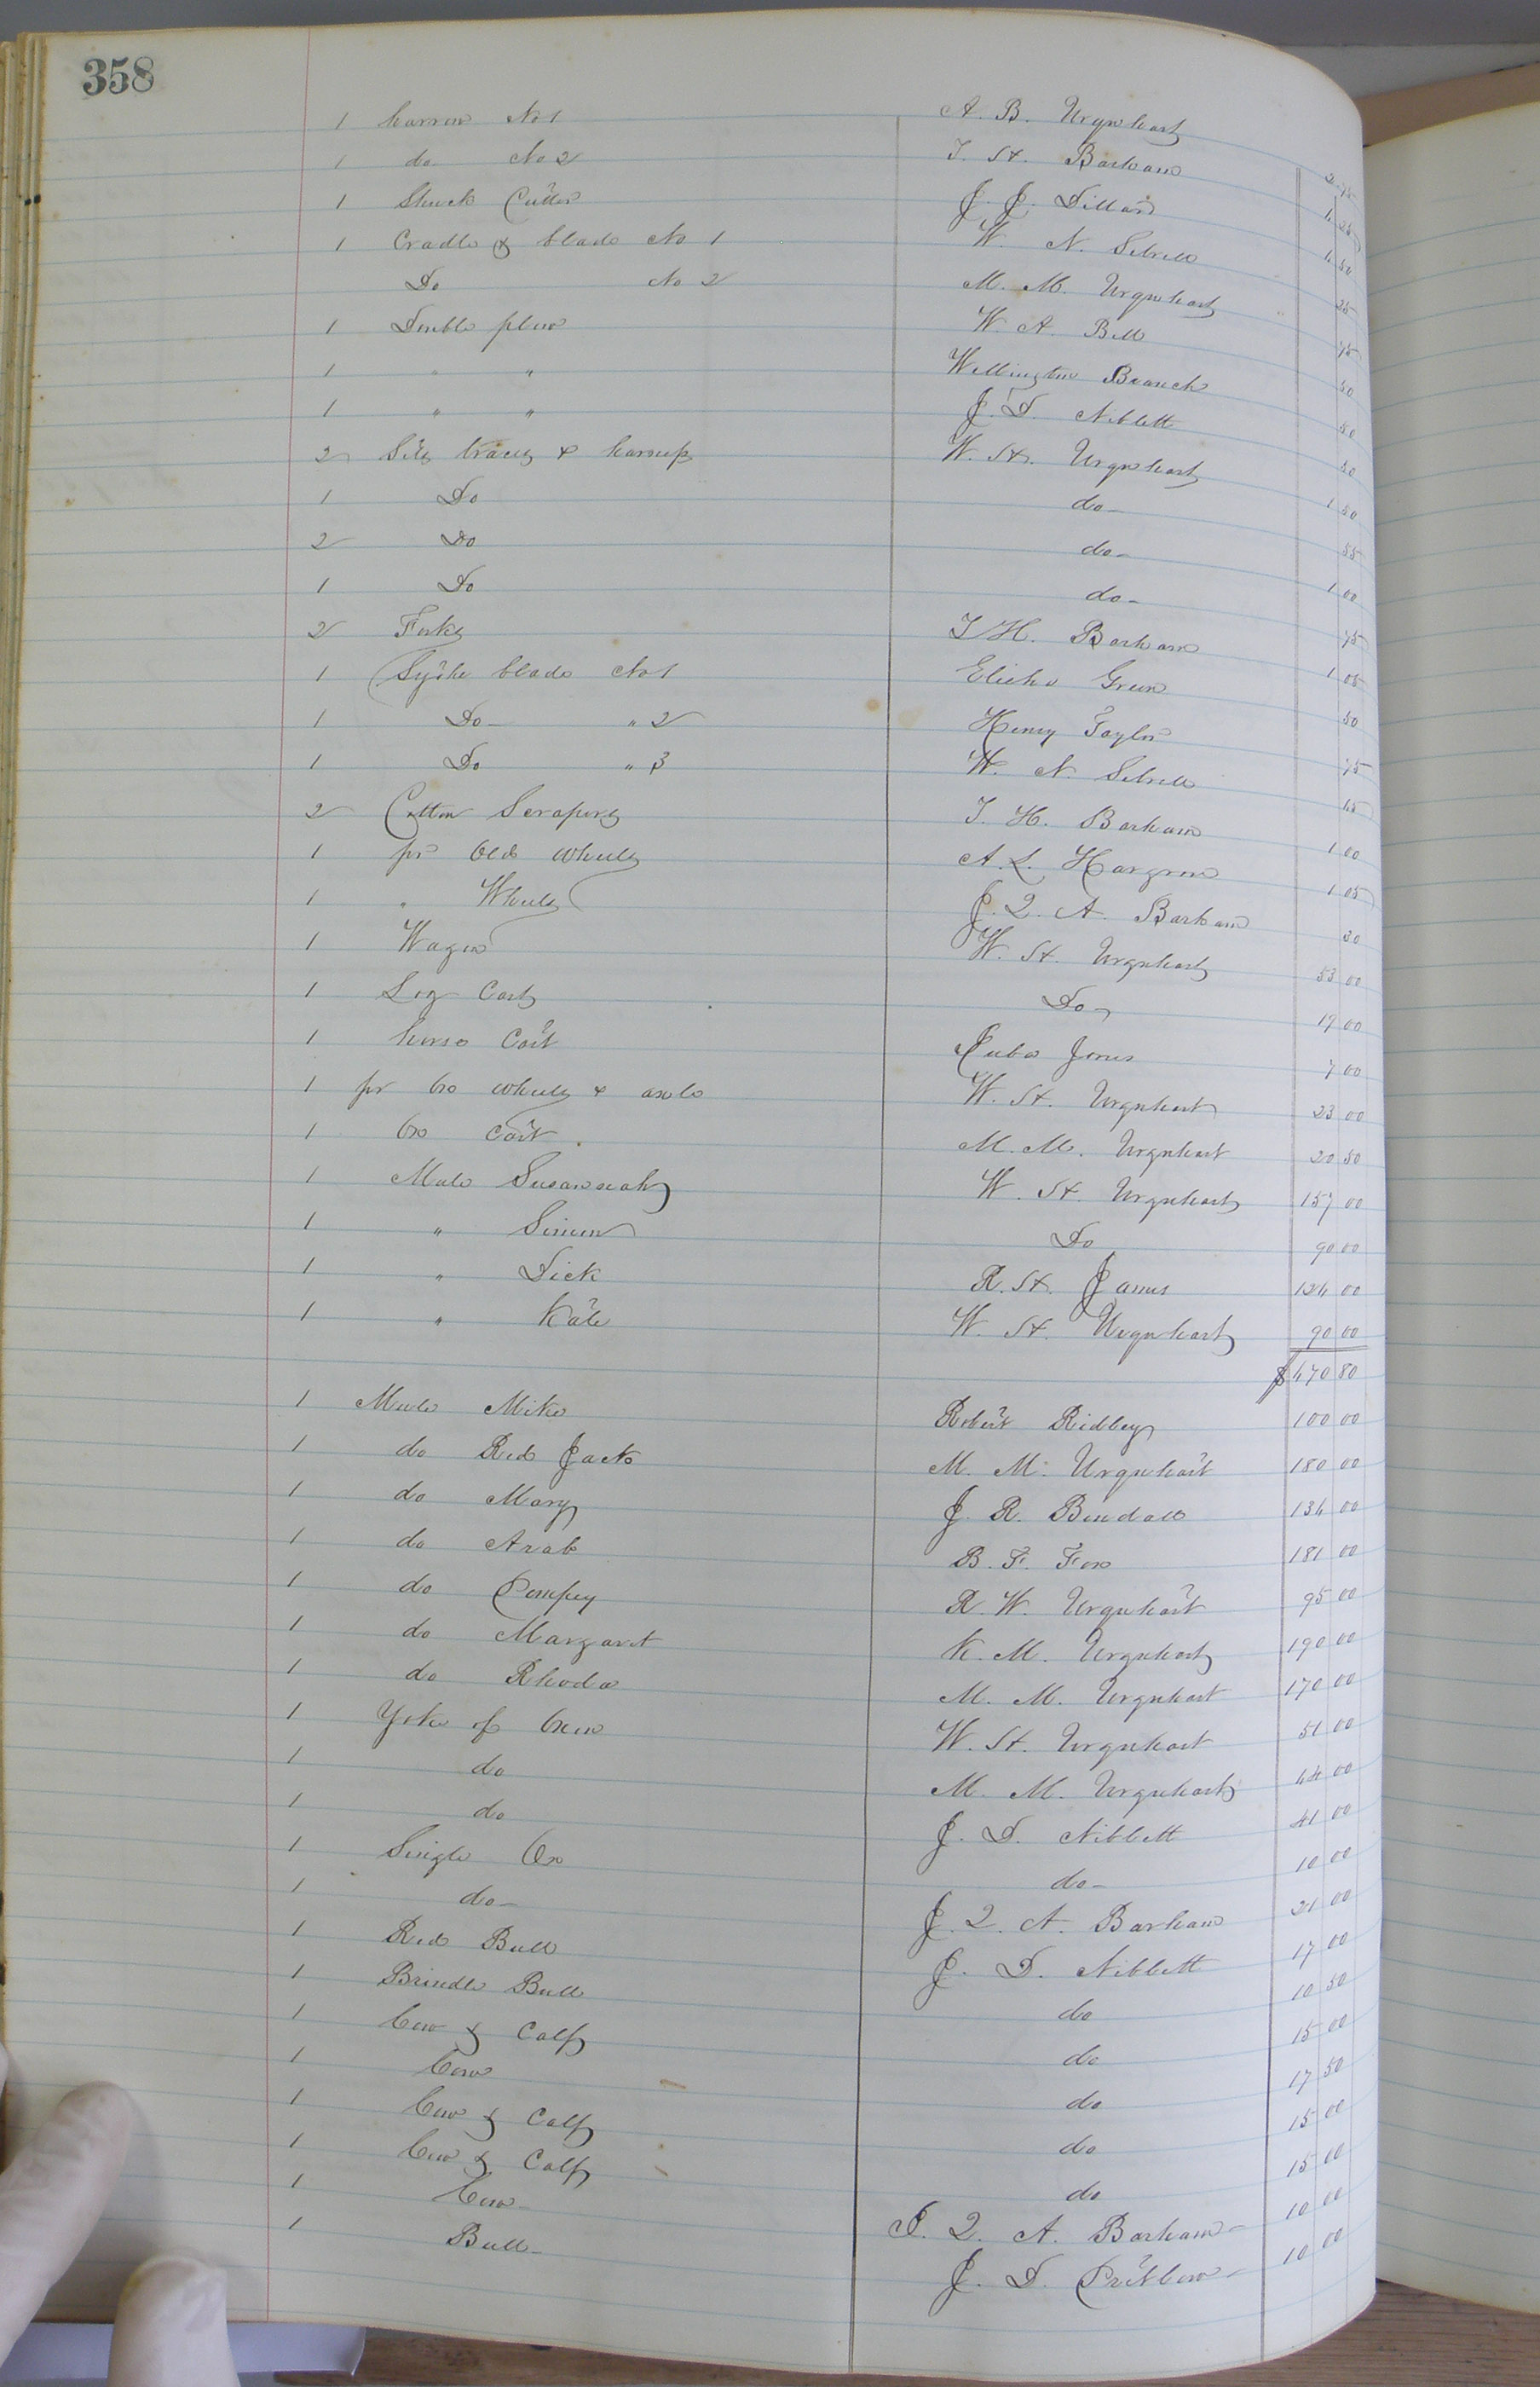 358
1 harrow No 1 A. B. Urquhart 2 75
1 do No 2 T. H. Barham 4 25
1 Shuck Cutter J. J. Dillard 4 50
1 Cradle & blade No 1 W. N. Sebrell 25
Do No 2 M. M. Urquhart 75
1 Double plow W. A. Bell 50
1 " " Wellington Branch 50
1 " " J. D. Niblett 50
2 Sets traces & harness W. H. Urquhart 1 50
1 Do do 55
2 Do do 1 00
1 Do do 75
2 Forks T H. Barham 1 05
1 Sythe blade No 1 Elisha Green 50
1 Do " 2 Henry Taylor 75
1 Do " 3 W. N. Sebrell 45
2 Cotton Scrapers T. H. Barham 1 00
1 pr Old wheels A. L. Hargrove 1 05
1 " Wheels J. Q. A. Barham 30
1 Wagon W. H. Urquhart 53 00
1 Log Cart Do 19 00
1 horse Cart Juba Jones 7 00
1 pr Ox wheels & axle W. H. Urquhart 23 00
1 Ox Cart M. M. Urquhart 20 50
1 Mule Susannah W. H. Urquhart 157 00
1 " Simon Do 90 00
1 " Dick R. H. James 134 00
1 " Kate W. H. Urquhart 90 00
$ 470 80
1 Mule Mike Robert Ridley 100 00
1 do Red Jack M. M. Urquhart 180 00
1 do Mary J. R. Bendall 134 00
1 do Arab B. F. Fox 181 00
1 do Pompey R. W. Urquhart 95 00
1 do Margaret K. M. Urquhart 190 00
1 do Rhoda M. M. Urquhart 170 00
1 Yoke of Oxen W. H. Urquhart 51 00
1 do M. M. Urquhart 44 00
1 do J. D. Niblett 41 00
1 Single Ox do 10 00
1 do J. Q. A. Barham 21 00
1 Red Bull J. D. Niblett 17 00
1 Brindle Bull do 10 50
1 Cow & Calf do 15 00
1 Cow do 17 50
1 Cow & Calf do 15 00
1 Cow & Calf do 15 00
1 Cow J. Q. A. Barham 10 00
1 Bull J. D. Pretlow 10 00